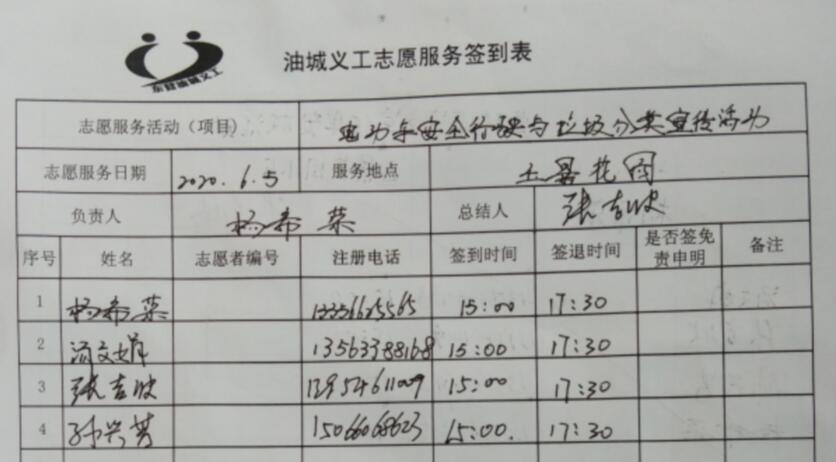 东营油城义工
油城义工志愿服务签到表
志愿服务活动（项目） 电动车安全行驶与垃圾分类宣传活动
志愿服务日期 2020.6.5 服务地点 大墨花园
负责人 杨希荣 总结人 张吉波
序号 姓名 志愿者编号 注册电话 签到时间 签退时间 是否签免责申明 备注
1 杨希荣 15:00 17:30
2 文娟 13563388168 15:00 17:30
3 张吉波 13954611009 15:00 17:30
4 孙兴芳 15066068623 15:00. 17:30